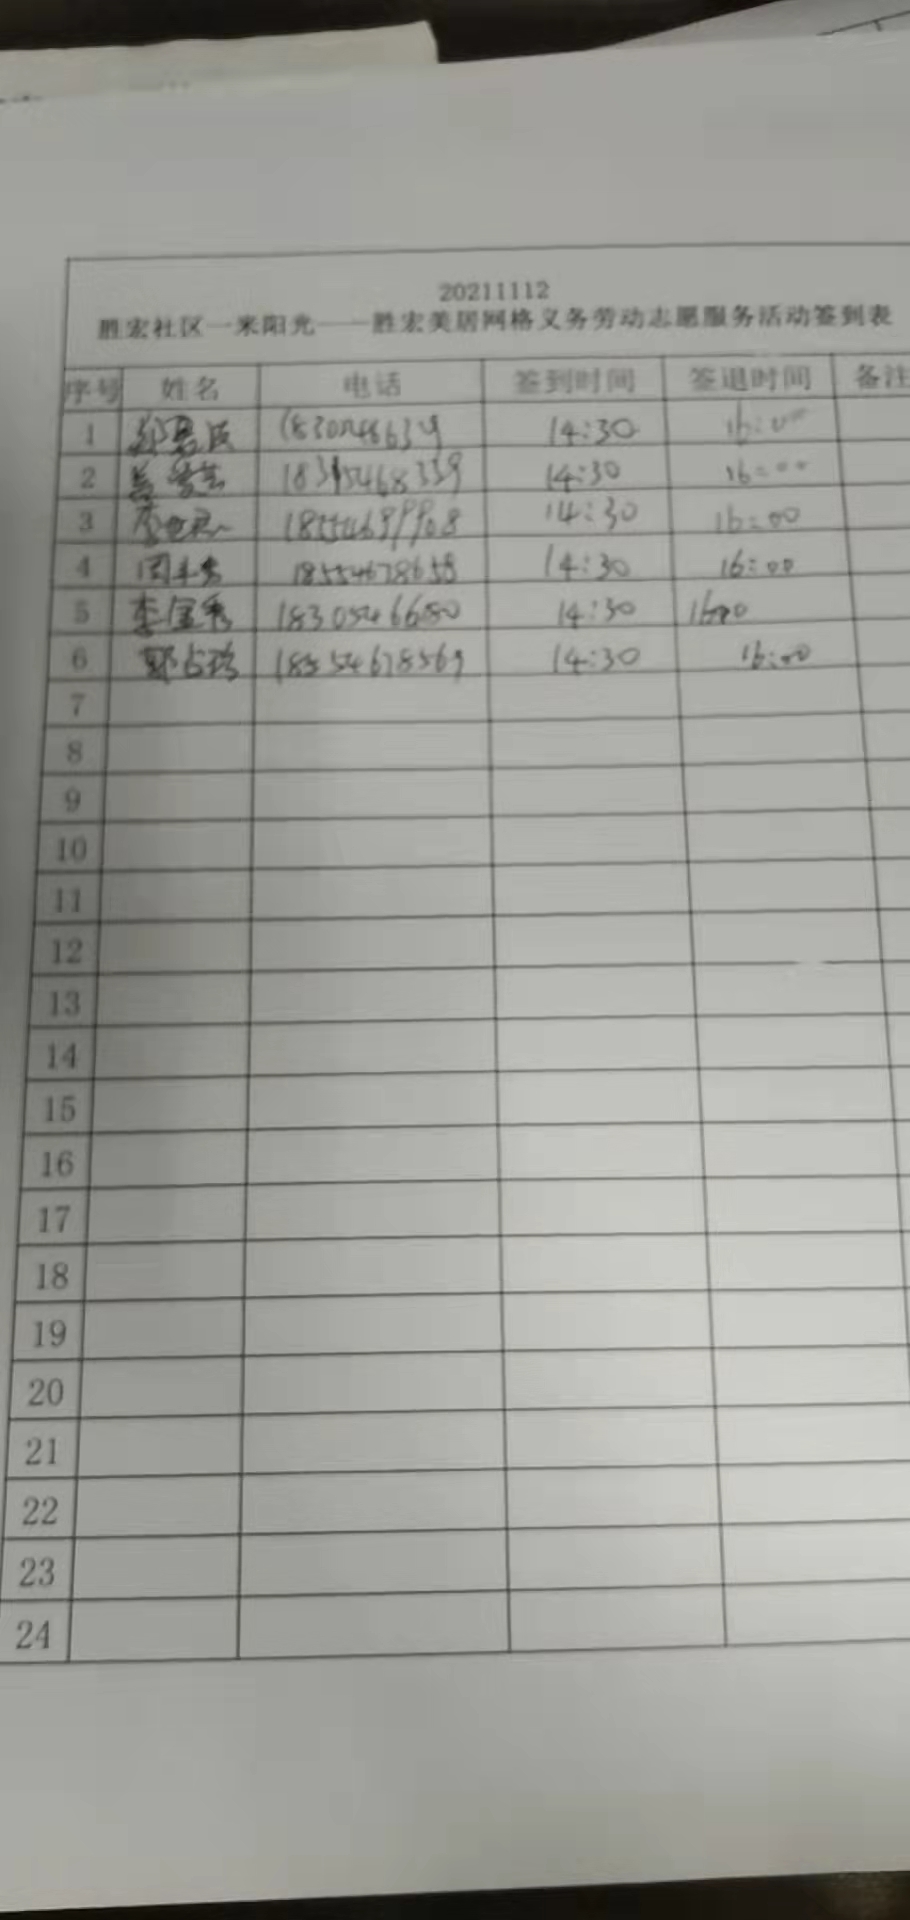 20211112
胜宏社区一米阳光——胜宏美居网格义务劳动志愿服务活动签到表
序号 姓名 电话 签到时间 签退时间 备注
1 14:30 16:00
2 14:30 16:00
3 18554699908 14:30 16:00
4 18554678658 14:30 16:00
5 李宝秀 18305466680 14:30 16:00
6 18554678569 14:30 16:00
7
8
9
10
11
12
13
14
15
16
17
18
19
20
21
22
23
24